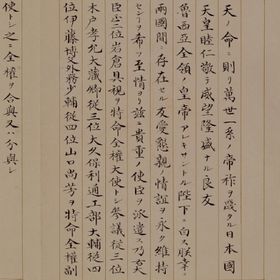 天ノ命ニ則リ萬世一系ノ帝祚ヲ践タル日本國
天皇睦仁敬テ威望隆盛ナル良友
魯西亞全領ノ皇帝アレキサンドル陛下ニ白ス朕幸ニ
兩國間ニ存在セル友愛懇親ノ情誼ヲ永ク維持
センヿヲ希フ至情ヨリ茲ニ貴重ノ使臣ヲ派遣ス乃チ
臣正二位岩倉具視ヲ特命全權大使トシ參議從三位
木戸孝允大藏卿從三位大久保利通工部大輔從四
位伊藤博文外務少輔從四位山口尚芳ヲ特命全權副
使トシ之ニ全權ヲ合與又ハ分與シ